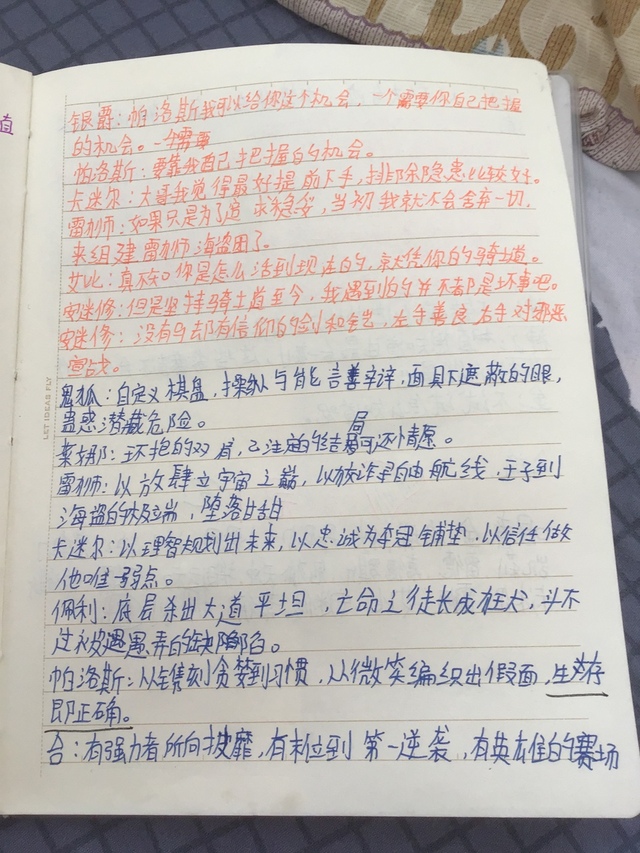 银爵：帕洛斯我可以给你这个机会，一个需要你自己把握
的机会。一个需要
帕洛斯：要靠我自己把握的机会。
卡迷尔：大哥我觉得最好提前下手，排除隐患比较好。
雷狮：如果只是为了追求稳妥，当初我就不会舍弃一切，
来组建雷狮海盗团了。
艾比：真不知你是怎么活到现在的，就凭你的骑士道。
安迷修：但是坚持骑士道至今，我遇到的并不都是坏事吧。
安迷修：没有马却有信仰的剑和铠，左手善良右手对邪恶
宣战。
鬼狐：自定义棋盘，操纵与能言善辞，面具下遮蔽的眼，
蛊惑潜藏危险。
莱娜：环抱的双肩，已注定的结局可还情愿。
局
雷狮：以放肆立宇宙之巅，以狡诈寻自由航线，王子到
海盗的极端，堕落甘甜
卡迷尔：以理智规划出未来，以忠诚为牵冠铺垫，以信任做
他唯一弱点。
佩利：底层杀出大道平坦，亡命之徒长成狂犬，斗不
过被愚弄的缺陷
帕洛斯：以镌刻贪婪到习惯，以微笑编织出假面，生存
即正确。
合：有强力者所向披靡，有末位到第一逆袭，有英雄的赛场
LET IDEAS FLY
值